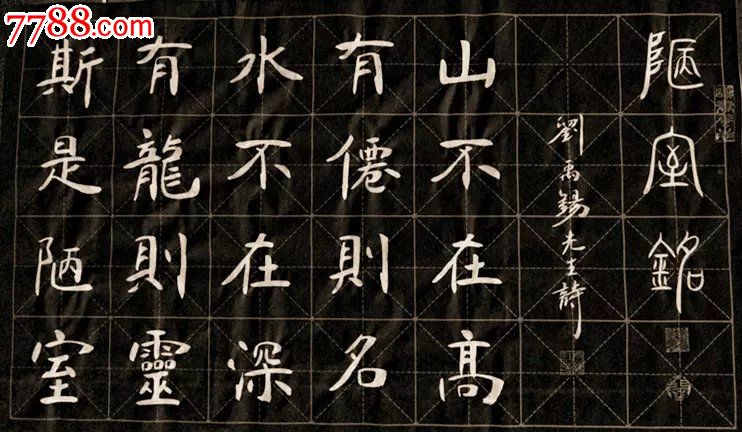 陋室銘
劉禹錫先生詩
山不在高
有僊則名
水不在深
有龍則靈
斯是陋室
7788.com